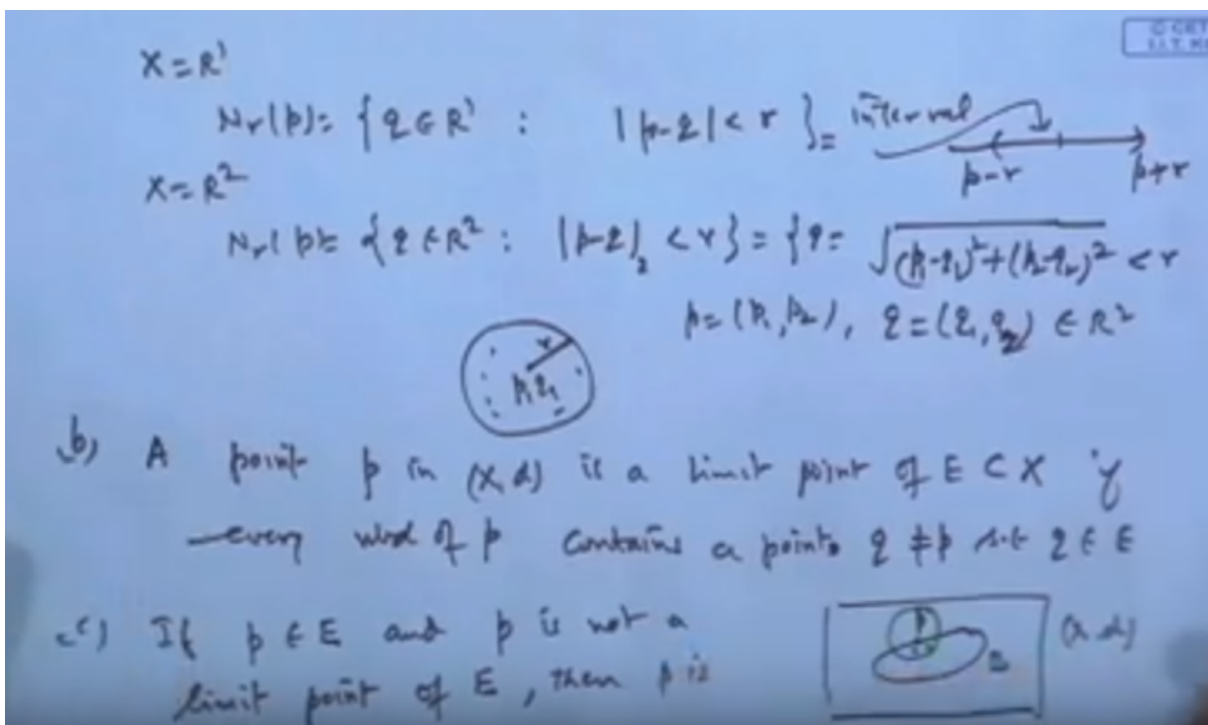 X = R¹
Nr(p) = {q ∈ R¹ : |p-q| < r} = interval
p-r p+r
X = R²
Nr(p) = {q ∈ R² : |p-q|₂ < r} = {q = √(p₁-q₁)²+(p₂-q₂)² < r
p = (p₁, p₂), q = (q₁, q₂) ∈ R²
r
b) A point p in (X, d) is a limit point of E ⊂ X if
every nbd of p contains a points q ≠ p s.t q ∈ E
c) If p ∈ E and p is not a
limit point of E, then p is
p
E
(X, d)